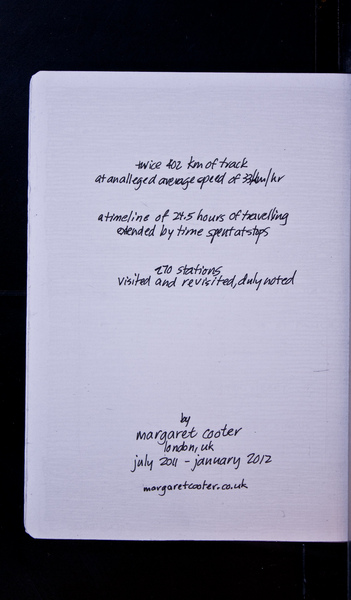 twice 402 km of track
at an alleged average speed of 33km/hr
a timeline of 24.5 hours of travelling
extended by time spent at stops
270 stations
visited and revisited, duly noted
by
margaret cooter
london, uk
july 2011 - january 2012
margaretcooter.co.uk